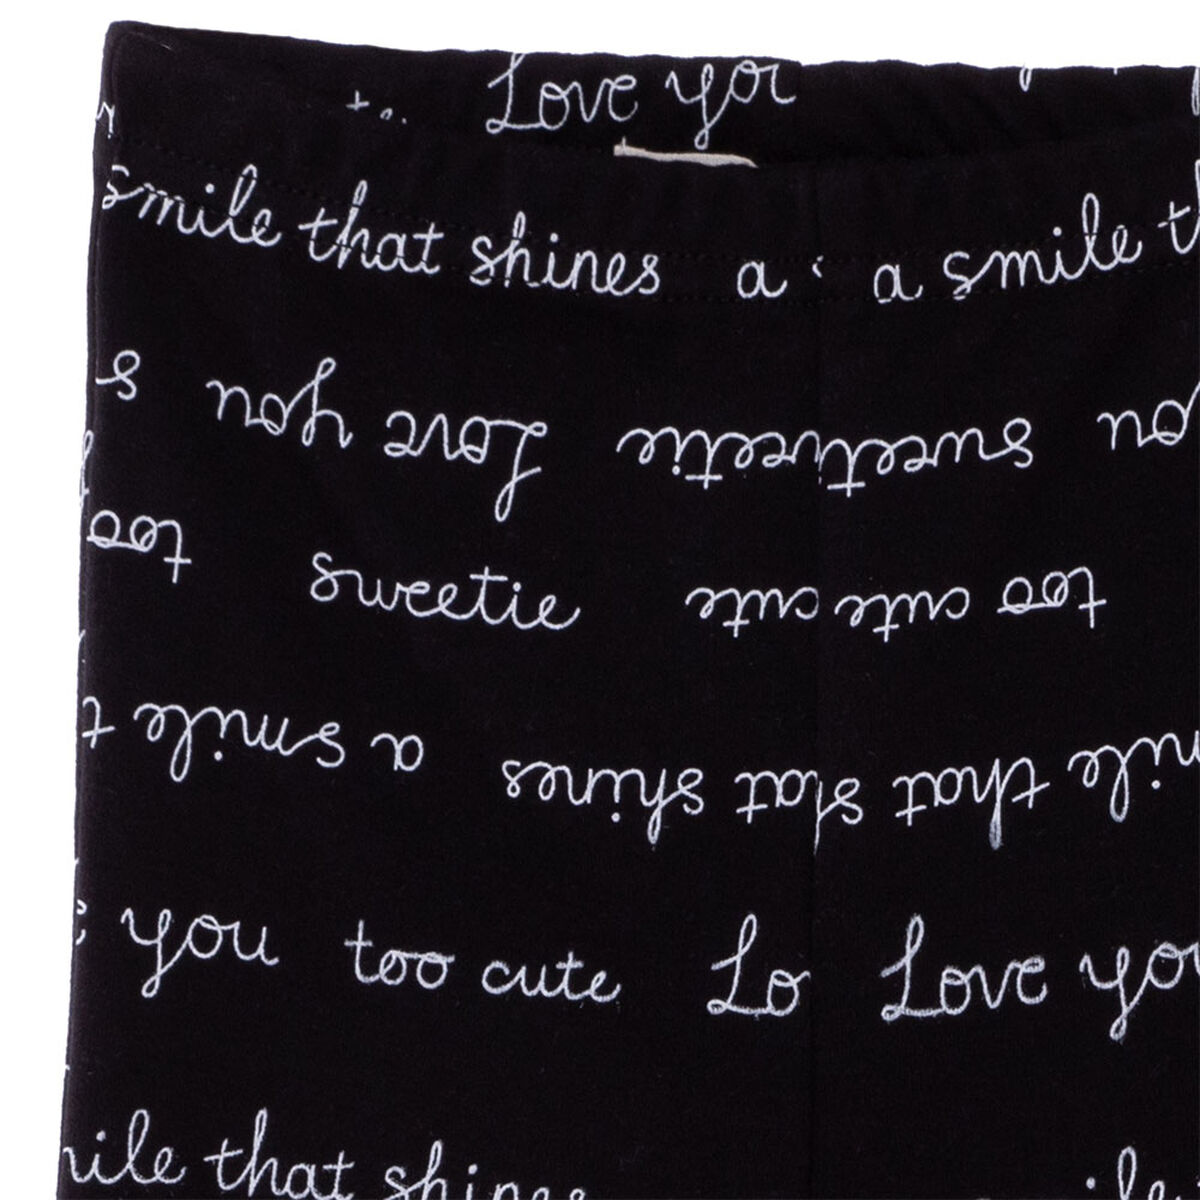 Love you
smile that shines a a smile
Love you sweetie sweetie
too sweetie cute too cute
a smile shines that that shines
you too cute Lo Love you
that shines